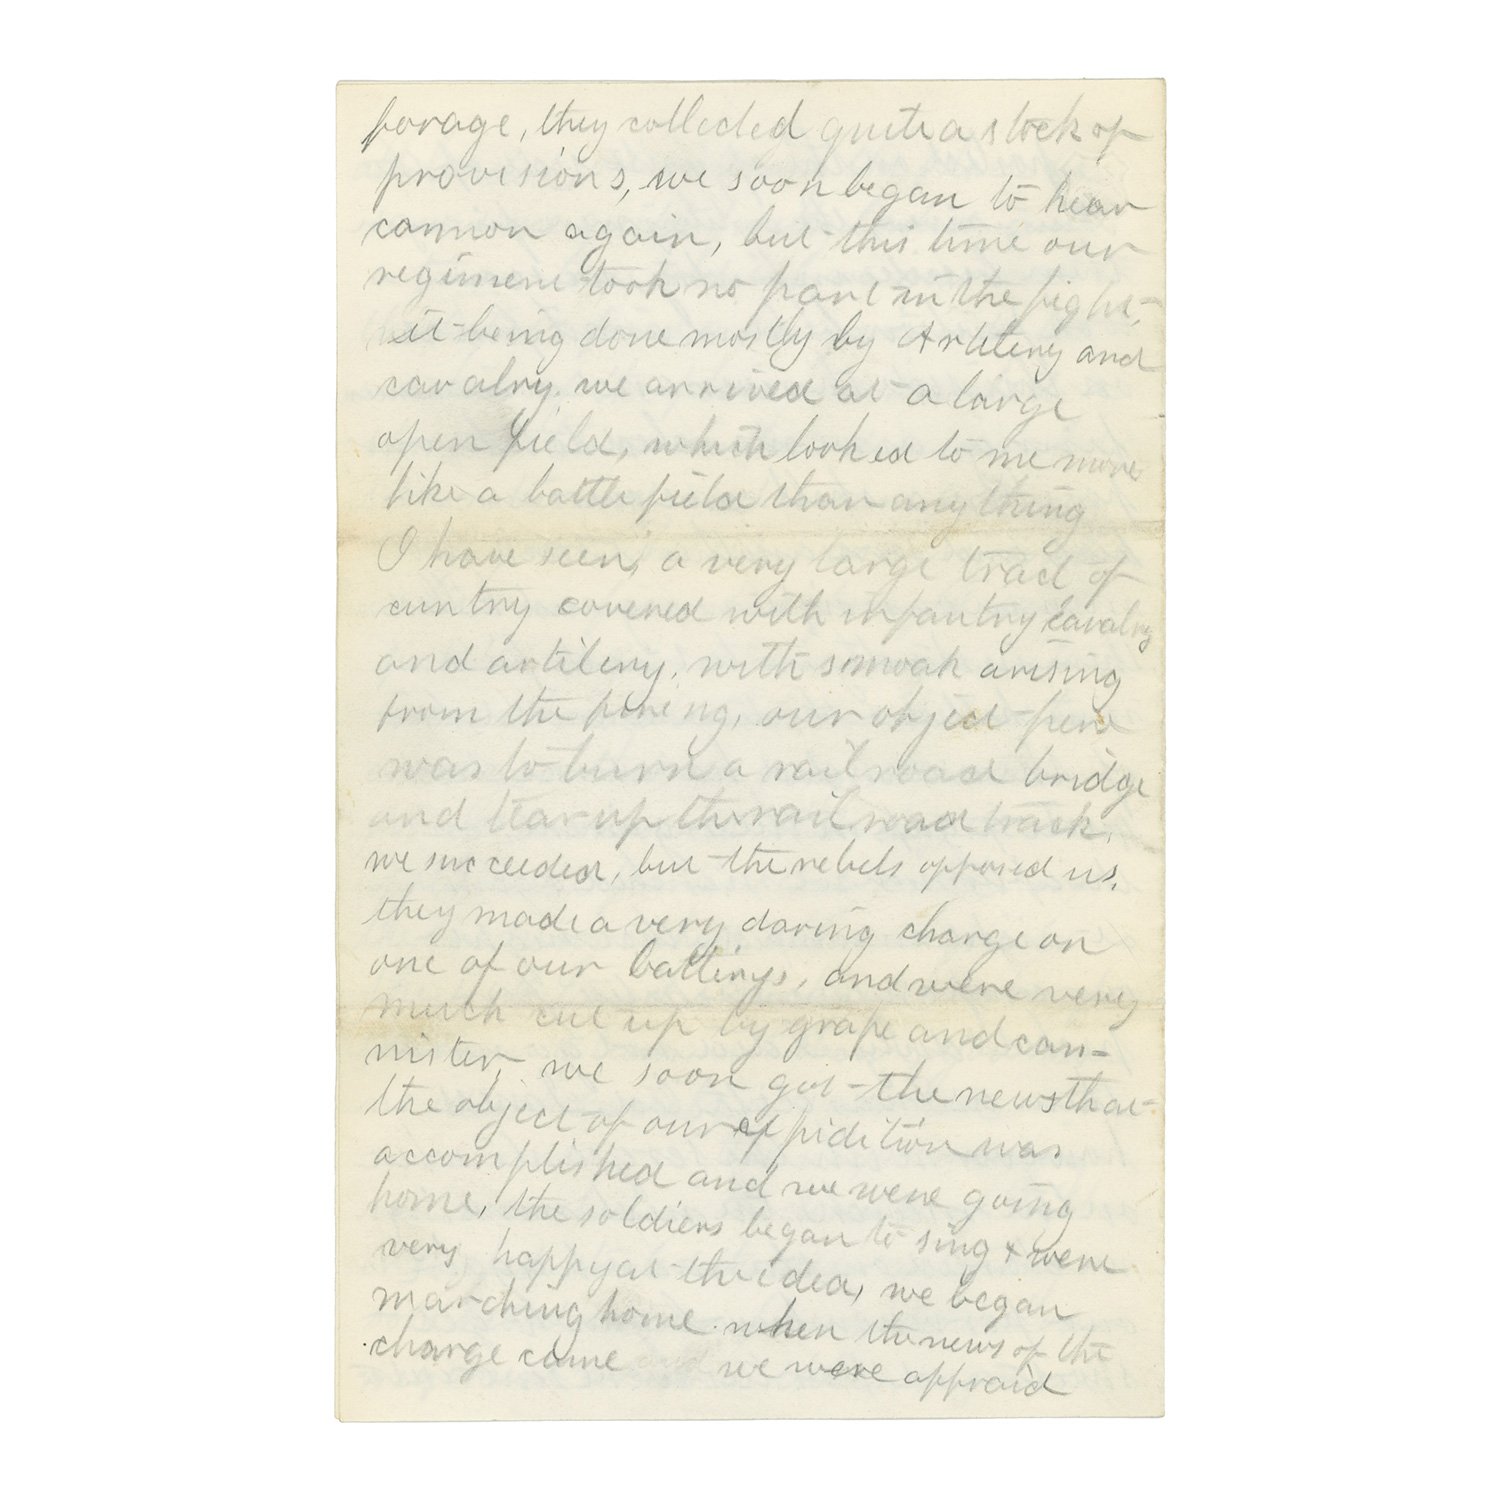 forage, they collected quite a stock of
provisions, we soon began to hear
cannon again, but this time our
regiment took no part in the fight,
it being done mostly by Artilery and
cavalry. we arrived at a large
open field, which looked to me more
like a battle field than any thing
I have seen, a very large tract of
cuntry covered with infantry cavalry
and artilery, with smoak arising
from the fireing, our object here
was to burn a rail road bridge
and tear up the rail road track.
we succeeded, but the rebels opposed us.
they made a very daring charge on
one of our batterys, and were very
much cut up by grape and can-
nister, we soon got the news that
the object of our expidition was
accomplished and we were going
home, the soldiers began to sing & were
very happy at the idea, we began
marching home when the news of the
charge came we were appraid